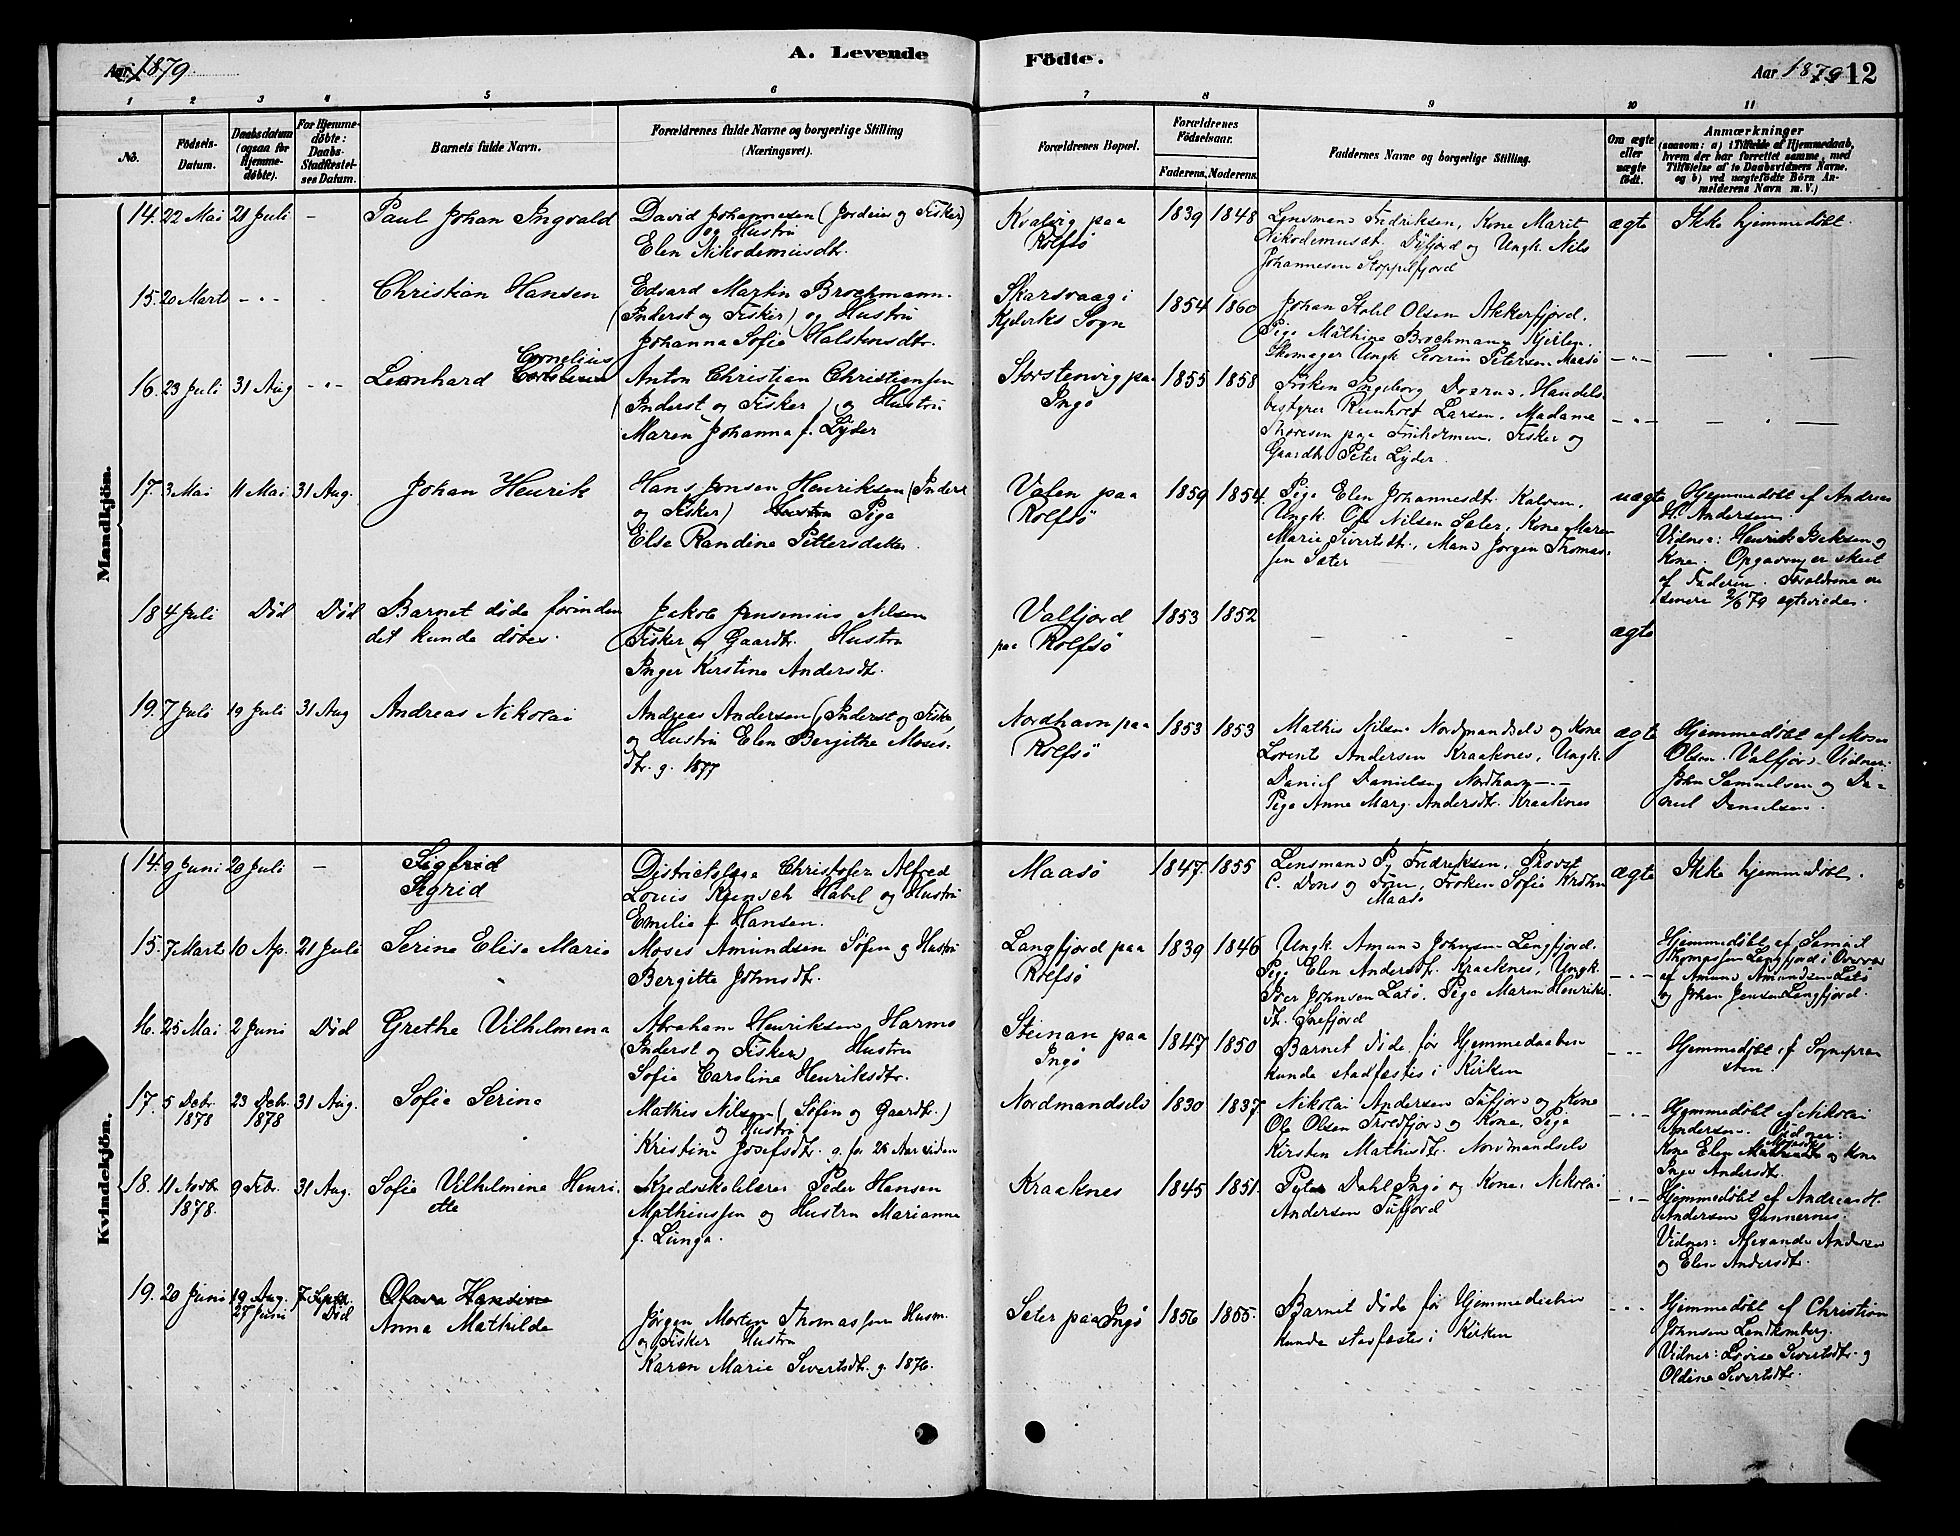 Aar 1879
A. Levende
Födte.
Aar 1879
12
1 2 3 4 5 6 7 8 9 10 11
No.
Födsels-
Datum.
Daabsdatum
(ogsaa for
Hjemme-
döbte).
For Hjemme-
döbte:
Daabs-
Stadfæstel-
ses Datum.
Barnets fulde Navn.
Forældrenes fulde Navne og borgerlige Stilling
(Næringsvei).
Forældrenes Bopæl.
Forældrenes
Födselsaar.
Faderens. Moderens.
Faddernes Navne og borgerlige Stilling.
Om ægte
eller
uægte
födt.
Anmærkninger
(saasom: a) i Tilfælde af Hjemmedaab,
hvem der har forrettet samme, med
Tilföielse af to Daabsvidners Navne.
og b) ved uægtefödte Börn An-
melderens Navn m. V.)
Mandkjön.
14. 22 Mai 21 Juli - Paul Johan Ingvald
David Johannesen (Jordeier og Fisker)
og Hustru
Elen Nikodemusdtr.
Kvalvig paa
Rolfsö
1839 1848
Lensmand Fredriksen, Kone Marit
Nikodemusdt. Dyfjord og Ungk. Nils
Johannesen Stoppelfjord
ægte
Ikke hjemmedöbt.
15. 20 Marts - " - Christian Hansen
Edvard Martin Brochmann
(Inderst og Fisker) og Hustru
Johanna Sofie Halstensdtr.
Skarsvaag i
Kjelviks Sogn
1854 1860
Johan Olsen Akkerfjord.
Pige Mathine Brochmann Kjeilen.
Skomager Ungk. Severin Petersen Maasö
- " - — " —
16. 23 Juli 31 Aug - " - Leonhard Cornelius
Anton Christian Christiansen
(Inderst og Fisker) og Hustru
Maren Johanna f. Lyder
Storstenvig paa
Ingö
1855 1858
Fröken Ingeborg Handels-
bestyrer Reinholt Larsen, Madame
Thoresen paa Fruholmen. Fisker og
Gaardb. Peter Lyder
- " - — " —
17. 3 Mai 11 Mai 31 Aug. Johan Henrik
Hans Jensen Henriksen (Inderst
og Fisker) Hustru Pige
Else Randine Pettersdatter
Valen paa
Rolfsö
1859 1854
Pige Elen Johannesdt. Kalven,
Ungk. Ole Nilsen Sater, Kone Maren
Marie Sivertsdt., Mand Jörgen Thomas-
sen Sater
uægte
Hjemmedöbt af Andreas
H. Andersen.
Vidner: Henrik og
Kone. Opgaven er skeet
af Faderen. Forældrene er
senere 2/6 79 egteviede.
18 4 Juli Död Död Barnet döde forinden
det kunde döbes.
Jakob Jensenius Nilsen
Fisker og Gaardb. Hustru
Inger Kirstine Andersdt.
Valfjord
paa Rolfsö
1853 1852
- - -
ægte
19. 7 Juli 19 Juli 31 Aug Andreas Nikolai
Andreas Andersen (Inderst og Fisker)
og Hustru Elen Bergithe Moses-
dtr. g. 1877
Nordhavn paa
Rolfsö
1853 1853
Mathis Nilsen Nordmandsels og Kone
Lorents Andersen Kraaknes, Ungk.
Daniel Danielsen Nordhavn - -
Pige Anne Marg. Andersdtr. Kraaknes
ægte
Hjemmedöbt af Moses
Olsen Valfjord. Vidner:
John Samuelsen og Da-
niel Danielsen.
Kvindekjön.
14. 9 Juni 20 Juli - Sigfrid
Sigrid
Districtslæge Christofer Alfred
Louis Habel og Hustru
Emilie f. Hansen.
Maasö
1847. 1855
Lensmand P. Fredriksen, Provst
C. Dons og Frue, Fröken Sofie Krohn
Maasö
ægte
Ikke hjemmedöbt.
15. 7 Marts 10 Ap. 21 Juli Serine Elise Marie
Moses Amundsen Söfin og Hustru
Bergitte Johnsdt.
Langfjord paa
Rolfsö
1839 1846
Ungk. Amund Johnsen Langfjord.
Pige Elen Andersdt. Kraaknes, Ungk.
Peer Johnsen Latö, Pige Maren Henriks-
dt. Snefjord
- " -
Hjemmedöbt af Samuel
Thomassen Langfjord i Overvær
af Amund Amundsen Latö
og Johan Jensen Langfjord.
16. 25 Mai 2 Juni Död Grethe Vilhelmena
Abraham Henriksen Harmo
(Inderst og Fisker) Hustru
Sofie Caroline Henriksdtr.
Steinan paa
Ingö
1847 1850
Barnet döde för Hjemmedaaben
kunde stadfæstes i Kirken
- " -
Hjemmedöbt af Sognepræ-
sten.
17. 5 Debr. 1878 23 Debr. 1878 31 Aug. Sofie Serine
Mathis Nilsen (Söfin og Gaardb.)
og Hustru
Kristine Josefsdtr. g. for 26 Aar siden
Nordmandsels
1830 1837
Nikolai Andersen Tufjord og Kone
Ole Olsen Troldfjord og Kone, Pige
Kirsten Mathisdtr. Nordmandsels
- " -
Hjemmedöbt af Nikolai
Andersen. Vidner:
Kone Elen og Kone
Inger Andersdt.
18. 11 Novbr. 1878. 9 Feb. 31 Aug. Sofie Vilhelmine Henri-
ette
Kredsskolelærer Peder Hansen
Mathiessen og Hustru Marianne
f. Lunga.
Kraaknes
1845 1851
Peter Dahl Ingö og Kone, Nikolai
Andersen Tufjord
- " -
Hjemmedöbt af Andreas H.
Andersen Gunnernes.
Vidner: Alexander Andersen
og Elen Andersdt.
19. 20 Juni 19 Aug. 27 Juni 7 Septbr. Död Olava Hansine
Anna Mathilde
Jörgen Morten Thomassen Husm.
og Fisker Hustru
Karen Marie Sivertsdt. g. 1876.
Sater paa Ingö
1856 1855.
Barnet döde för Hjemmedaaben
kunde stadfæstes i Kirken
- " -
Hjemmedöbt af Christian
Johnsen
Vidner: Lovise Sivertsdtr. og
Oldine Sivertsdtr.